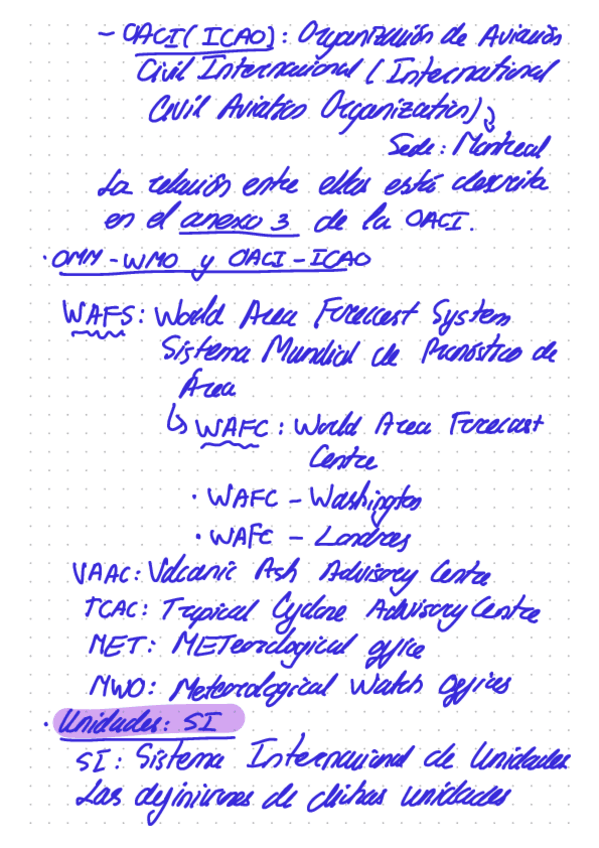 - OACI (ICAO): Organización de Aviación
Civil Internacional (International
Civil Aviation Organization)
Sede: Montreal
La relación entre ellas está descrita
en el anexo 3 de la OACI.
· OMM-WMO y OACI-ICAO
WAFS: World Area Forecast System
Sistema Mundial de Pronóstico de
Área
↳ WAFC: World Area Forecast
Centre
· WAFC - Washington
· WAFC - Londres
VAAC: Volcanic Ash Advisory Centre
TCAC: Tropical Cyclone Advisory Centre
MET: METeorological office
MWO: Meteorological Watch Offices
· Unidades: SI
SI: Sistema Internacional de Unidades
Las definiciones de dichas unidades